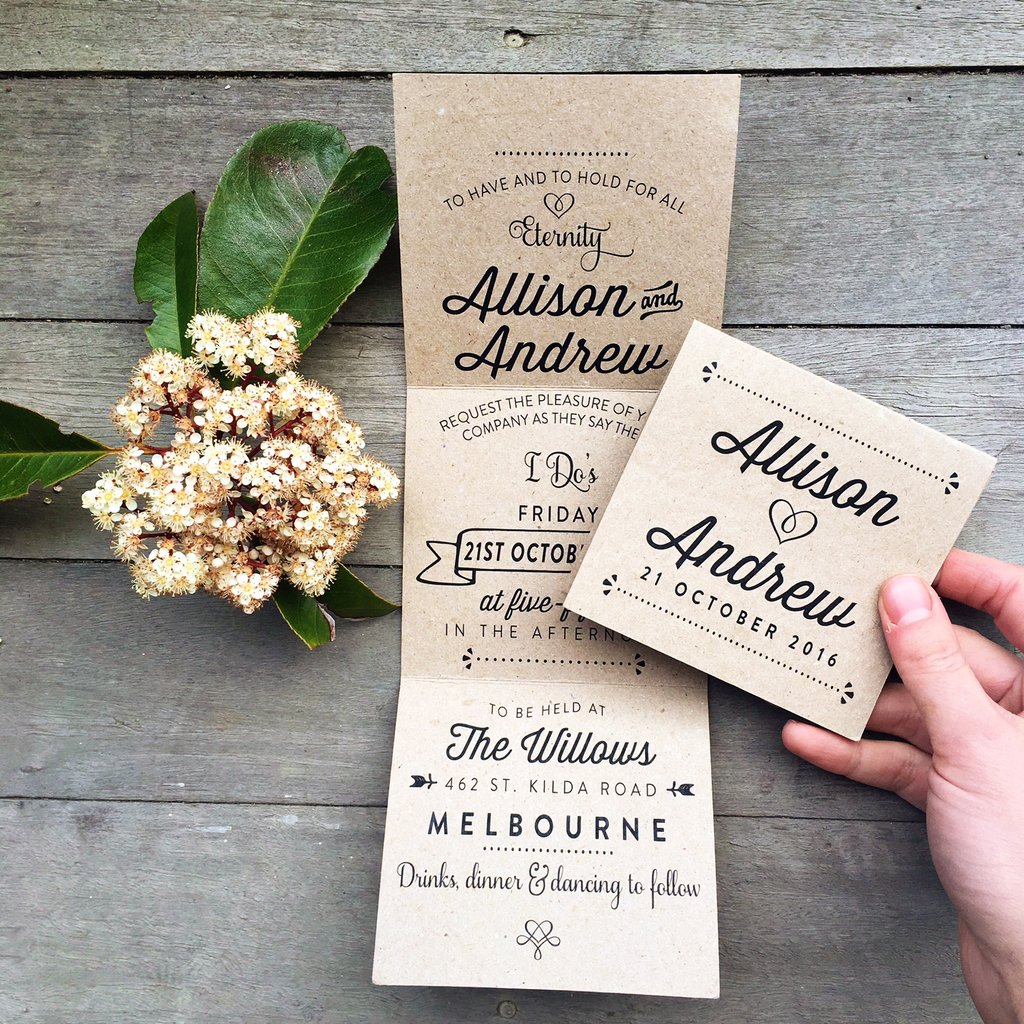 TO HAVE AND TO HOLD FOR ALL
Eternity
Allison and
Andrew
REQUEST THE PLEASURE OF
COMPANY AS THEY SAY THE
I Do's
FRIDAY
21ST
at
IN THE
TO BE HELD AT
The Willows
462 ST. KILDA ROAD
MELBOURNE
Drinks, dinner & dancing to follow
Allison
Andrew
21 OCTOBER 2016